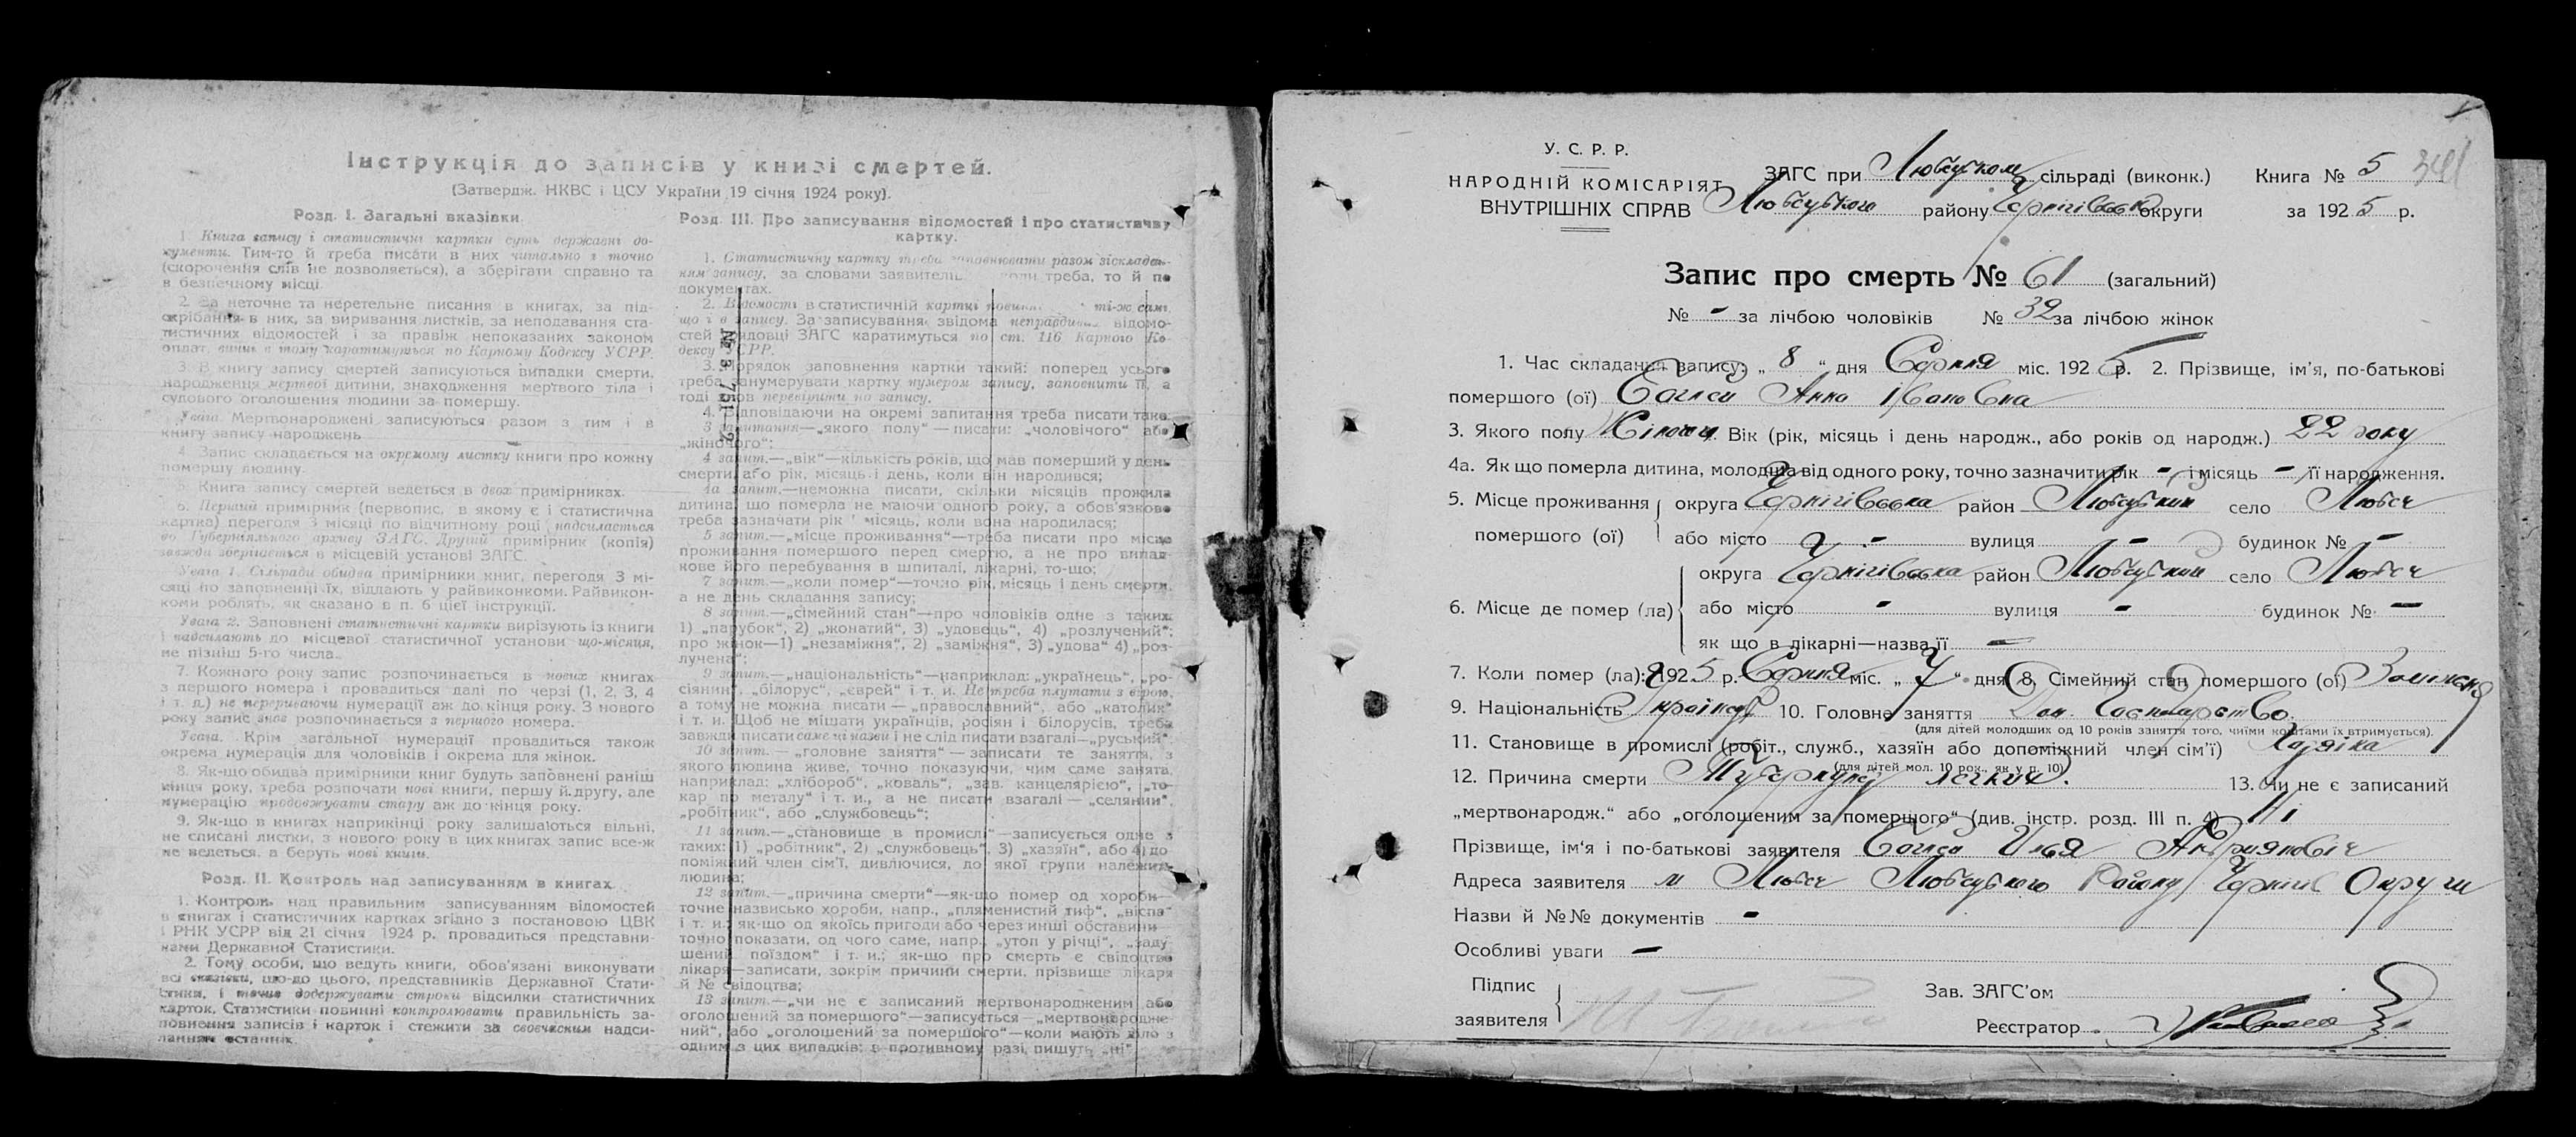 Інструкція до записів у книзі смертей.
(Затвердж. НКВС і ЦСУ України 19 січня 1924 року).
Розд. I. Загальні вказівки
1. Книга запису і статистичні картки суть державні до-
кументи. Тим-то й треба писати в них читально і точно
(скорочення слів не дозволяється), а зберігати справно та
в безпечному місці.
2. За неточне та неретельне писання в книгах, за під-
скрібання в них, за виривання листків, за неподавання ста-
тистичних відомостей і за правіж непоказаних законом
оплат, винні в тому каратимуться по Карному Кодексу УСРР.
3. В книгу запису смертей записуються випадки смерти,
народження мертвої дитини, знаходження мертвого тіла і
судового оголошення людини за померлу.
Увага. Мертвонароджені записуються разом з тим і в
книгу запису народжень.
4. Запис складається на окремому листку книги про кожну
померлу людину.
5. Книга запису смертей ведеться в двох примірниках.
6. Перший примірник (первопис, в якому є і статистична
картка) переголя 3 місяці по відчитному році надсилається
до Губерніяльного архиву ЗАГС. Другий примірник (копія)
завжди зберігається в місцевій установі ЗАГС.
Увага 1. Сільради обидва примірники книг, перегодя 3 мі-
сяці по заповненні їх, віддають у райвиконкоми. Райвикон-
коми роблять, як сказано в п. 6 цієї інструкції.
Увага 2. Заповнені статистичні картки вирізують із книги
і надсилають до місцевої статистичної установи що-місяця,
не пізніш 5-го числа.
7. Кожного року запис розпочинається в нових книгах
з першого номера і провадиться далі по черзі (1, 2, 3, 4
і т. д.) не перериваючи нумерації аж до кінця року. З нового
року запис знов розпочинається з першого номера.
Увага. Крім загальної нумерації провадиться також
окрема нумерація для чоловіків і окрема для жінок.
8. Як-що обидва примірники книг будуть заповнені раніш
кінця року, треба розпочати нові книги, першу й другу, але
нумерацію продовжувати стару аж до кінця року.
9. Як-що в книгах наприкінці року залишаються вільні,
не списані листки, з нового року в цих книгах запис все-ж
не ведеться, а беруть нові книги.
Розд. II. Контроль над записуванням в книгах
1. Контроль над правильним записуванням відомостей
в книгах і статистичних картках згідно з постановою ЦВК
і РНК УСРР від 21 січня 1924 р. провадиться представни-
ками Державної Статистики.
2. Тому особи, що ведуть книги, обов'язані виконувати
всі вказівки, що-до цього, представників Державної Стати-
стики, і точно додержувати строки відсилки статистичних
карток. Статистики повинні контролювати правильність за-
повнення записів і карток і стежити за своєчасним надси-
ланням останніх.
Розд. III. Про записування відомостей і про статистичну
картку.
1. Статистичну картку треба заповнювати разом зіскладан-
ням запису, за словами заявителів коли треба, то й по
документах.
2. Відомості в статистичній картці повинні ті-ж самі,
що і в запису. За записування звідома неправдивих відомо-
стей урядовці ЗАГС каратимуться по ст. 116 Карного Ко-
дексу УСРР.
3. Порядок заповнення картки такий: поперед усього
треба занумерувати картку нумером запису, заповнити її, а
тоді знов перевірити по запису.
4. Відповідаючи на окремі запитання треба писати так:
3 запитання—„якого полу“—писати: „чоловічого“ або
„жіночого“;
4 запит.—„вік“—кількість років, що мав померший у день
смерти, або рік, місяць і день, коли він народився;
4а запит.—неможна писати, скільки місяців прожила
дитина, що померла не маючи одного року, а обов'язково
треба зазначати рік і місяць, коли вона народилася;
5 запит.—„місце проживання“—треба писати про місце
проживання помершого перед смертю, а не про випад-
кове його перебування в шпиталі, лікарні, то-що;
7 запит.—„коли помер“—точно рік, місяць і день смерти,
а не день складання запису;
8 запит.—„сімейний стан“—про чоловіків одне з таких:
1) „парубок“, 2) „жонатий“, 3) „удовець“, 4) „розлучений“;
про жінок—1) „незаміжня“, 2) „заміжня“, 3) „удова“ 4) „роз-
лучена“;
9 запит.—„національність“—наприклад: „українець“, „ро-
сіянин“, „білорус“, „єврей“ і т. и. Не треба плутати з вірою,
а тому не можна писати—„православний“, або „католик“
і т. и. Щоб не мішати українців, росіян і білорусів, треба
завжди писати саме ці назви і не слід писати взагалі—„руський“.
10 запит.—„головне заняття“—записати те заняття, з
якого людина живе, точно показуючи, чим саме занята,
наприклад: „хлібороб“, „коваль“, „зав. канцелярією“, „то-
кар по металу“ і т. и., а не писати взагалі—„селянин“,
„робітник“, або „службовець“;
11 запит.—„становище в промислі“—записується одне з
таких: 1) „робітник“, 2) „службовець“, 3) „хазяїн“, або 4) до-
поміжний член сім'ї, дивлючися, до якої групи належить
людина;
12 запит.—„причина смерти“—як-що помер од хороби—
точне назвисько хороби, напр., „пляменистий тиф“, „віспа“
і т. и.; як-що од якоїсь пригоди або через инші обставини—
точно показати, од чого саме, напр., „утоп у річці“, „заду-
шений поїздом“ і т. и.; як-що про смерть є свідоцтво
лікаря—записати, зокрім причини смерти, прізвище лікаря
й № свідоцтва;
13 запит.—„чи не є записаний мертвонародженим або
оголошений за помершого“—записується—„мертвонародже-
ний“, або „оголошений за помершого“—коли мають діло з
одним з цих випадків; в противному разі пишуть „ні“.
У. С. Р. Р.
НАРОДНІЙ КОМІСАРІЯТ
ВНУТРІШНІХ СПРАВ
ЗАГС при Любецком сільраді (виконк.) Книга № 5 341
Любецького району Чернігівської округи за 1925 р.
Запис про смерть № 61 (загальний)
№ - за лічбою чоловіків № 32 за лічбою жінок
1. Час складання запису: „8“ дня Серпня міс. 1925 р. 2. Прізвище, ім'я, по-батькові
помершого (ої) Анна Івановна
3. Якого полу Жіночи Вік (рік, місяць і день народж., або років од народж.) 22 року
4а. Як що померла дитина, молодша від одного року, точно зазначити рік - і місяць - її народження.
5. Місце проживання помершого (ої) округа Чернігівська район Любецький село Любеч
або місто - вулиця - будинок № -
6. Місце де помер (ла) округа Чернігівська район Любецький село Любеч
або місто - вулиця - будинок № -
як що в лікарні—назва її -
7. Коли помер (ла): 1925 р. Серпня міс. „7“ дня 8. Сімейний стан помершого (ої) Заміжня
9. Національність 10. Головне заняття Дом. Господарство.
(для дітей молодших од 10 років заняття того, чиїми коштами їх втримується).
11. Становище в промислі (робіт., служб., хазяїн або допоміжний член сім'ї) Хазяїка
(для дітей мол. 10 рок., як у п. 10)
12. Причина смерти Туберкульоз легких. 13. Чи не є записаний
„мертвонародж.“ або „оголошеним за помершого“ (див. інстр. розд. III п. 4) Ні
Прізвище, ім'я і по-батькові заявителя Илья Андриянович
Адреса заявителя м Любеч Любецького Району Черніг Округи
Назви й №№ документів -
Особливі уваги -
Підпис
заявителя
Зав. ЗАГС'ом
Реєстратор